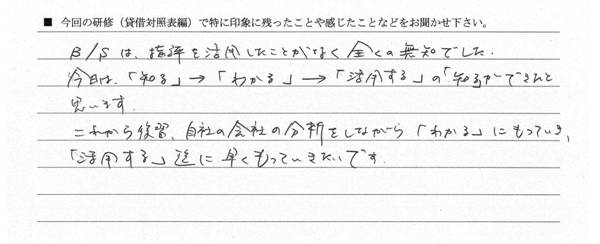 ■ 今回の研修（貸借対照表編）で特に印象に残ったことや感じたことなどをお聞かせ下さい。
B/Sは、指標を活用したことがなく全くの無知でした.
今日は、「知る」→「わかる」→「活用する」の「知る」ができたと
思います.
これから復習、自社の会社の分析をしながら「わかる」にもっていき、
「活用する」迄に早くもっていきたいです.